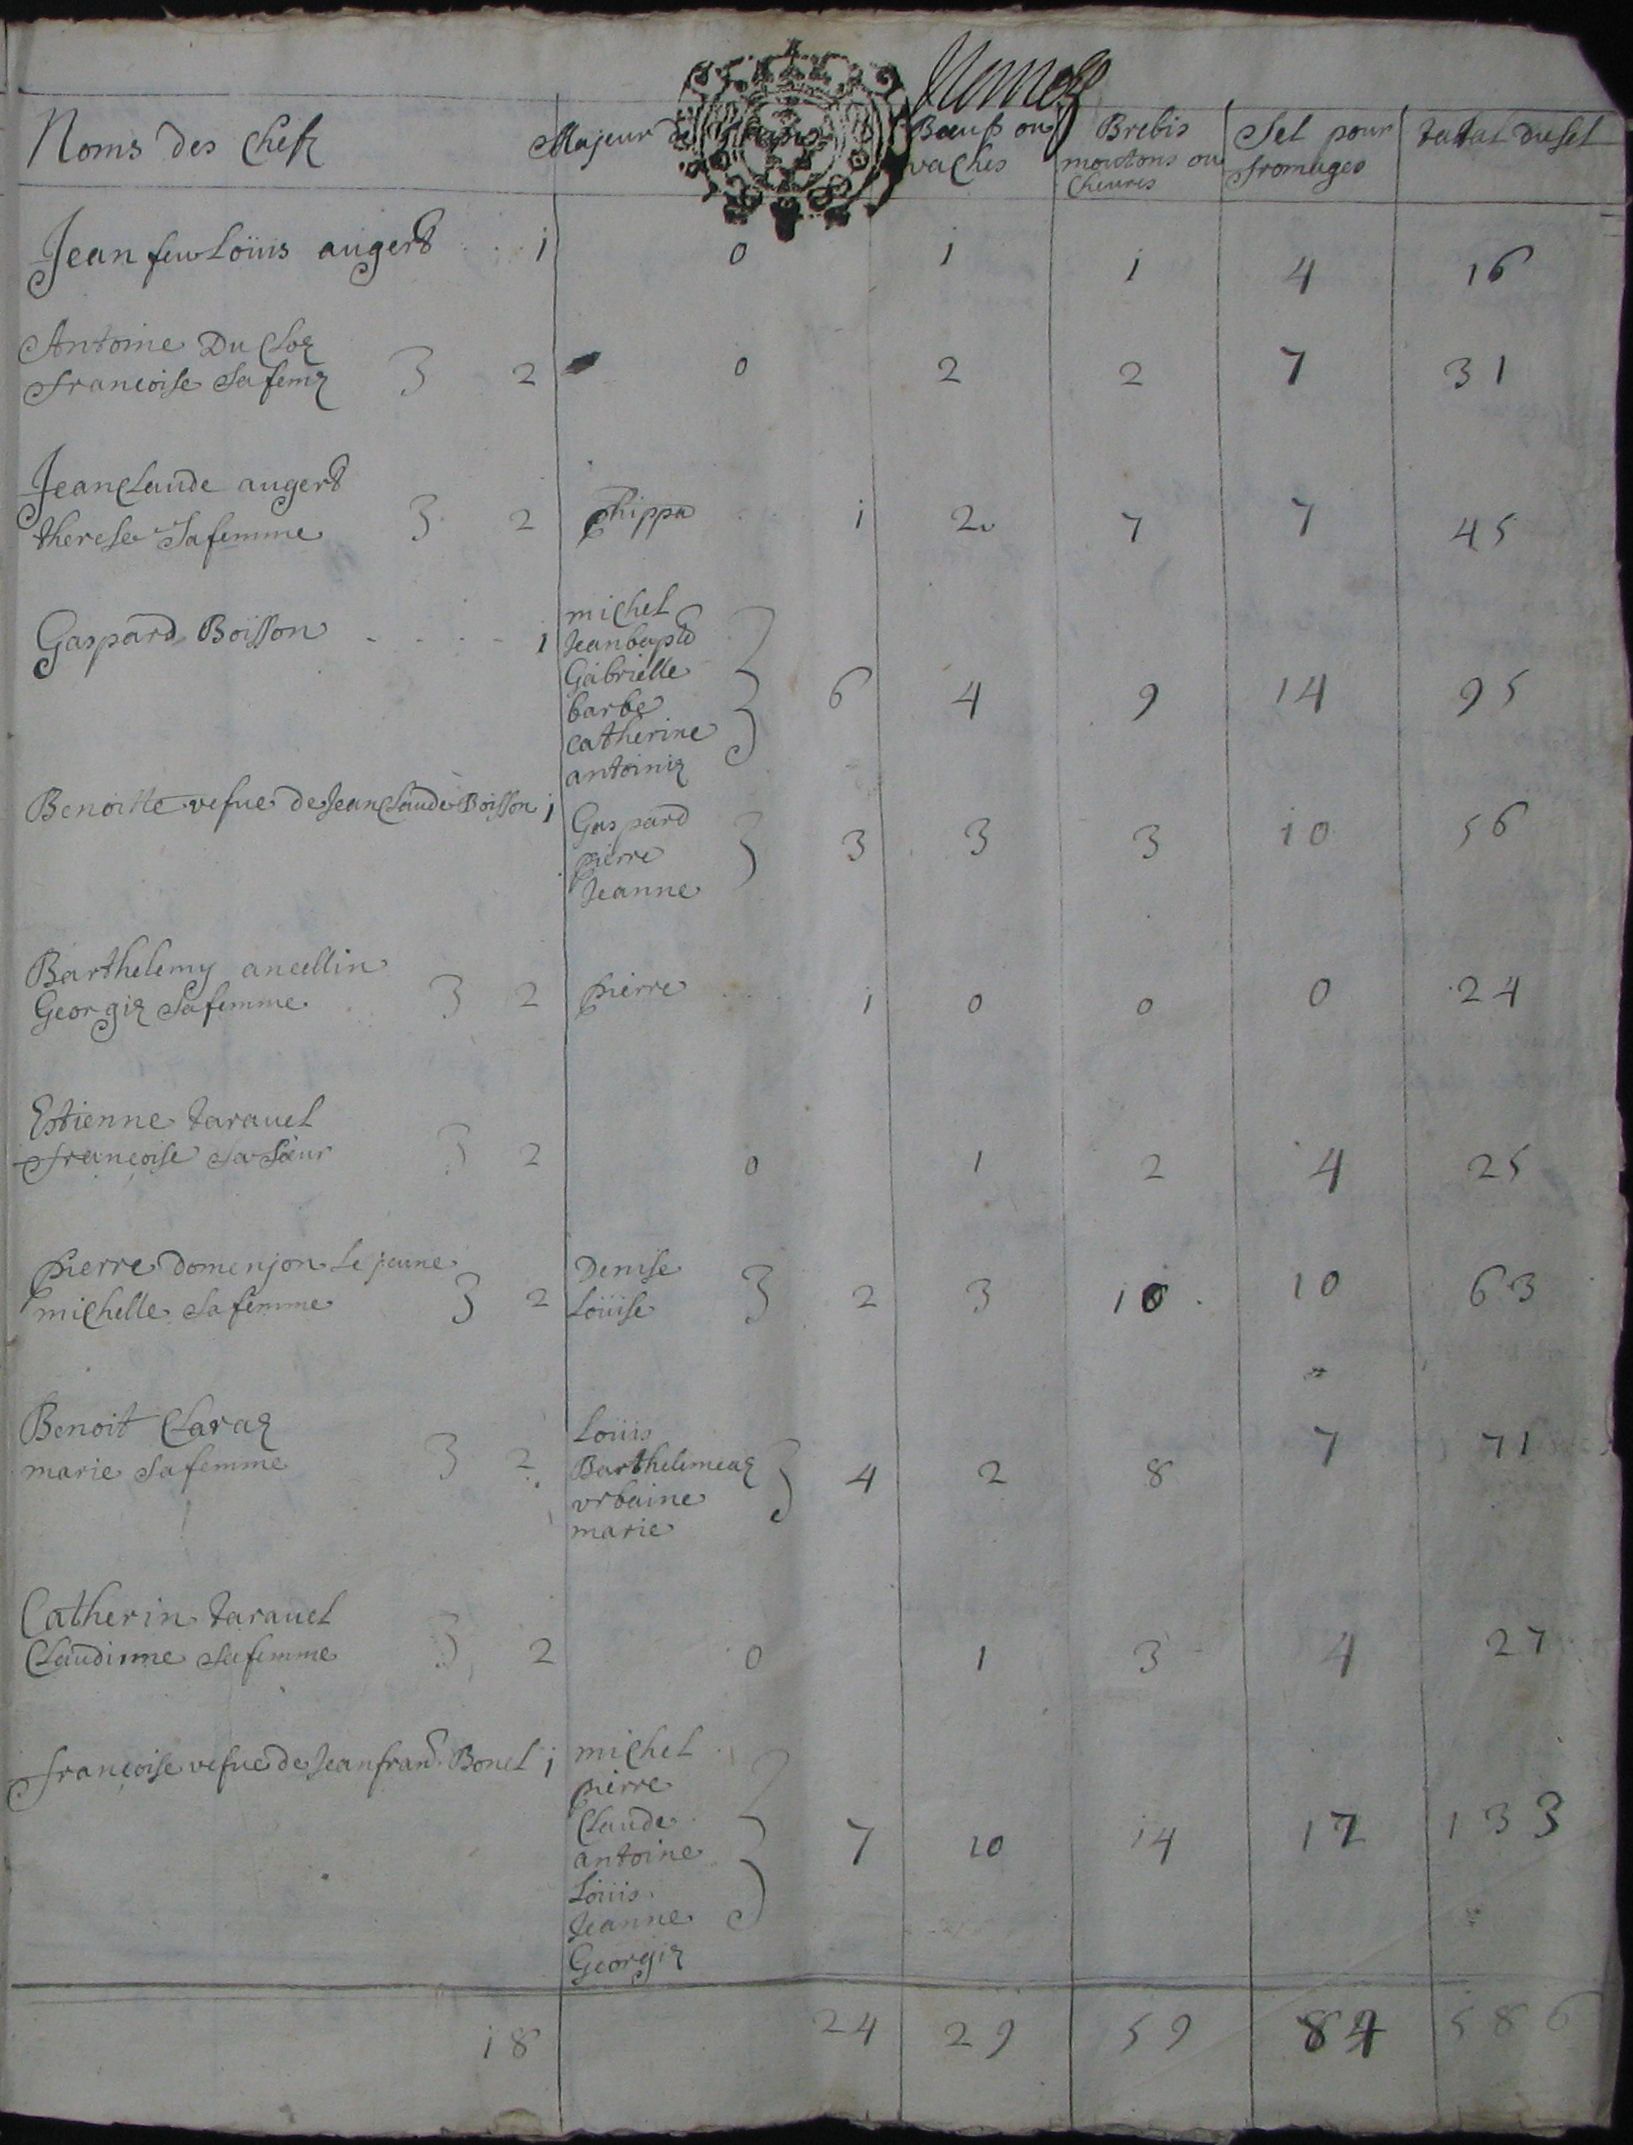 Noms des Chefz Majeur de Bœufs ou vaches Brebis moutons ou Cheures Sel pour fromages tatal du sel
Jean feu Loüis augert . . 1 0 1 1 4 16
Antoine Du Cloz
francoise Sa feme 3 2 0 2 2 7 31
Jean Claude augert
therese Sa femme 3 2 Phippa 1 2 7 7 45
Gaspard Boisson . . . . 1 michel
Jean bapte
Gabrielle
barbe 6 4 9 14 95
catherine
antoiniz
Benoitte vefue de Jean Claude Boisson 1 Gaspard
pierre 3 3 3 10 56
Jeanne
Barthelemy ancellin
Georgiz Sa femme 3 2 pierre 1 0 0 0 24
Estienne tarauel
francoise Sa Sœur 3 2 0 1 2 4 25
pierre domenjon Le jeune Denise
michelle Sa femme 3 2 Loüise 3 2 3 10 10 63
Benoit Claraz Loüis
marie Sa femme 3 2 Barthelemeaz 4 2 8 7 71
vrbaine
marie
Catherin tarauel
Claudinne Sa femme 3 2 0 1 3 4 27
francoise vefue de Jean fran. Bonel 1 michel
pierre
Claude
antoine 7 10 14 17 133
Loüis
Jeanne
Georgiz
18 24 29 59 84 586